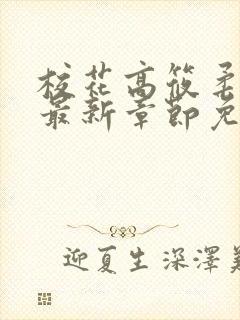 校花高筱柔
最新章節免
迎夏生深澤美